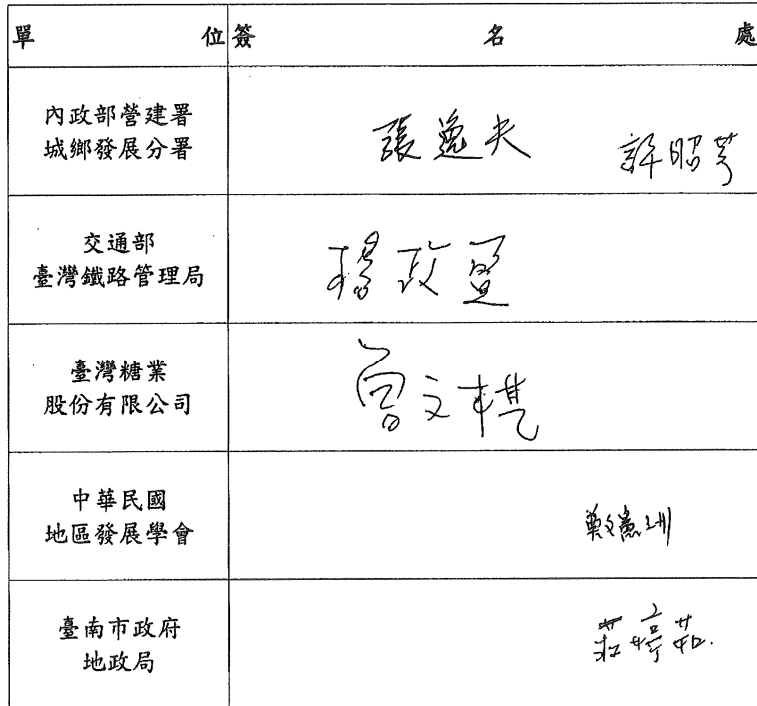 單位 簽名處
內政部營建署
城鄉發展分署
張逸夫 許昭芳
交通部
臺灣鐵路管理局
楊政盈
臺灣糖業
股份有限公司
曾文
中華民國
地區發展學會
鄭
臺南市政府
地政局
莊婷茹